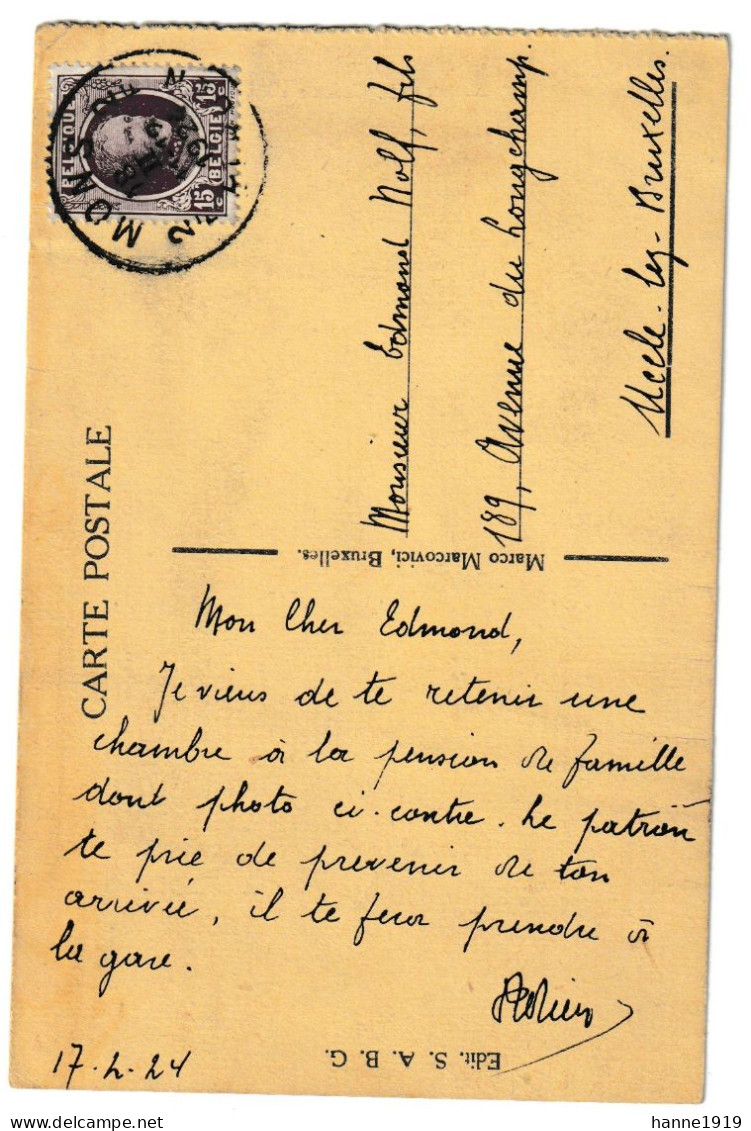 CARTE POSTALE
BELGIE
15 c
MONS
Monsieur Edmond Nolf, fils
189, Avenue du Longchamp.
Uccle-lez-Bruxelles.
Marco Marcovici, Bruxelles.
Mon Cher Edmond,
Je viens de te retenir une
chambre à la pension de famille
dont photo ci-contre. Le patron
te prie de prevenir de ton
arrivée, il te fera prendre à
la gare.
17-2-24
Edit. S. A. B. G.
hanne1919